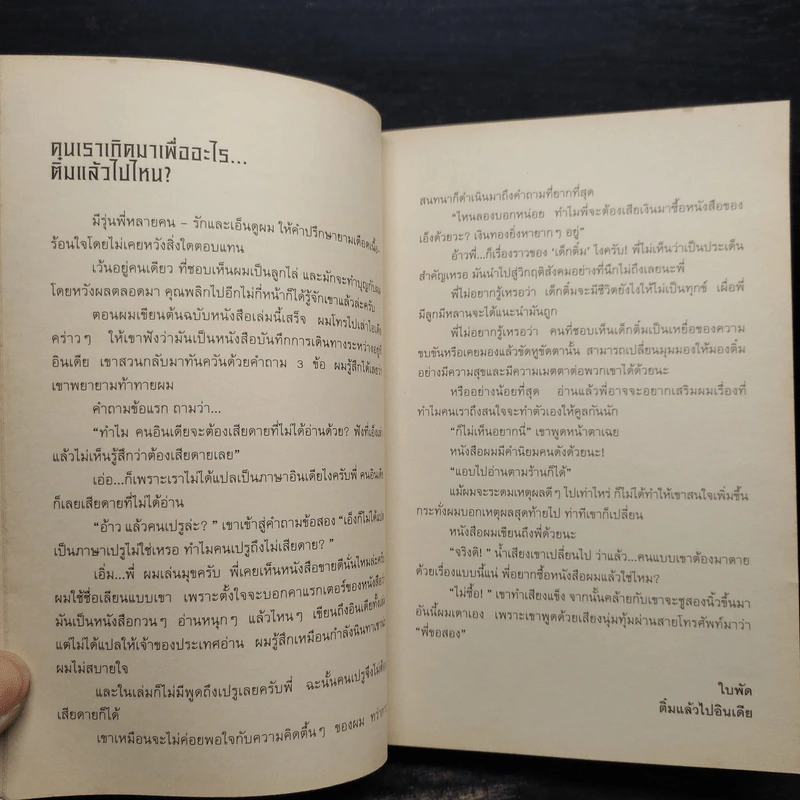 คนเราเกิดมาเพื่ออะไร...
ติ๋มแล้วไปไหน?
มีรุ่นพี่หลายคน – รักและเอ็นดูผม ให้คำปรึกษายามเดือดเนื้อ
ร้อนใจโดยไม่เคยหวังสิ่งใดตอบแทน
เว้นอยู่คนเดียว ที่ชอบเห็นผมเป็นลูกไล่ และมักจะทำบุญกับผม
โดยหวังผลตลอดมา คุณพลิกไปอีกไม่กี่หน้าก็ได้รู้จักเขาแล้วล่ะครับ
ตอนผมเขียนต้นฉบับหนังสือเล่มนี้เสร็จ ผมโทรไปเล่าไอเดีย
คร่าวๆ ให้เขาฟังว่ามันเป็นหนังสือบันทึกการเดินทางระหว่างอยู่ที่
อินเดีย เขาสวนกลับมาทันควันด้วยคำถาม 3 ข้อ ผมรู้สึกได้เลยว่า
เขาพยายามท้าทายผม
คำถามข้อแรก ถามว่า...
“ทำไม คนอินเดียจะต้องเสียดายที่ไม่ได้อ่านด้วย? ฟังที่เอ็งเล่า
แล้วไม่เห็นรู้สึกว่าต้องเสียดายเลย”
เอ่อ...ก็เพราะเราไม่ได้แปลเป็นภาษาอินเดียไงครับพี่ คนอินเดีย
ก็เลยเสียดายที่ไม่ได้อ่าน
“อ้าว แล้วคนเปรูล่ะ? ” เขาเข้าสู่คำถามข้อสอง “เอ็งก็ไม่ได้แปล
เป็นภาษาเปรูไม่ใช่เหรอ ทำไมคนเปรูถึงไม่เสียดาย? ”
เอิ่ม...พี่ ผมเล่นมุขครับ พี่เคยเห็นหนังสือขายดีนั่นไหมล่ะครับ
ผมใช้ชื่อเลียนแบบเขา เพราะตั้งใจจะบอกคาแรกเตอร์ของหนังสือว่า
มันเป็นหนังสือกวนๆ อ่านหนุกๆ แล้วไหนๆ เขียนถึงอินเดียทั้งเล่ม
แต่ไม่ได้แปลให้เจ้าของประเทศอ่าน ผมรู้สึกเหมือนกำลังนินทาเขา
ผมไม่สบายใจ
และในเล่มก็ไม่มีพูดถึงเปรูเลยครับพี่ ฉะนั้นคนเปรูจึงไม่
เสียดายก็ได้
เขาเหมือนจะไม่ค่อยพอใจกับความคิดตื้นๆ ของผม
สนทนาก็ดำเนินมาถึงคำถามที่ยากที่สุด
“ไหนลองบอกหน่อย ทำไมพี่จะต้องเสียเงินมาซื้อหนังสือของ
เอ็งด้วยวะ? เงินทองยิ่งหายากๆ อยู่”
อ้าวพี่...ก็เรื่องราวของ ‘เด็กติ๋ม’ ไงครับ! พี่ไม่เห็นว่าเป็นประเด็น
สำคัญเหรอ มันนำไปสู่วิกฤติสังคมอย่างที่นึกไม่ถึงเลยนะพี่
พี่ไม่อยากรู้เหรอว่า เด็กติ๋มจะมีชีวิตยังไงให้ไม่เป็นทุกข์ เผื่อพี่
มีลูกมีหลานจะได้แนะนำมันถูก
พี่ไม่อยากรู้เหรอว่า คนที่ชอบเห็นเด็กติ๋มเป็นเหยื่อของความ
ขบขันหรือเคยมองแล้วขัดหูขัดตานั้น สามารถเปลี่ยนมุมมองให้มองติ๋ม
อย่างมีความสุขและมีความเมตตาต่อพวกเขาได้ด้วยนะ
หรืออย่างน้อยที่สุด อ่านแล้วพี่อาจจะอยากเสริมผมเรื่องที่
ทำไมคนเราถึงสนใจจะทำตัวเองให้คูลกันนัก
“ก็ไม่เห็นอยากนี่” เขาพูดหน้าตาเฉย
หนังสือผมมีคำนิยมคนดังด้วยนะ!
“แอบไปอ่านตามร้านก็ได้”
แม้ผมจะระดมเหตุผลดีๆ ไปเท่าไหร่ ก็ไม่ได้ทำให้เขาสนใจเพิ่มขึ้น
กระทั่งผมบอกเหตุผลสุดท้ายไป ท่าทีเขาก็เปลี่ยน
หนังสือผมเขียนถึงพี่ด้วยนะ
“จริงดิ! ” น้ำเสียงเขาเปลี่ยนไป ว่าแล้ว...คนแบบเขาต้องมาตาย
ด้วยเรื่องแบบนี้แน่ พี่อยากซื้อหนังสือผมแล้วใช่ไหม?
“ไม่ซื้อ! ” เขาทำเสียงแข็ง จากนั้นคล้ายกับเขาจะชูสองนิ้วขึ้นมา
อันนี้ผมเดาเอง เพราะเขาพูดด้วยเสียงนุ่มทุ้มผ่านสายโทรศัพท์มาว่า
“พี่ขอสอง”
ใบพัด
ติ๋มแล้วไปอินเดีย